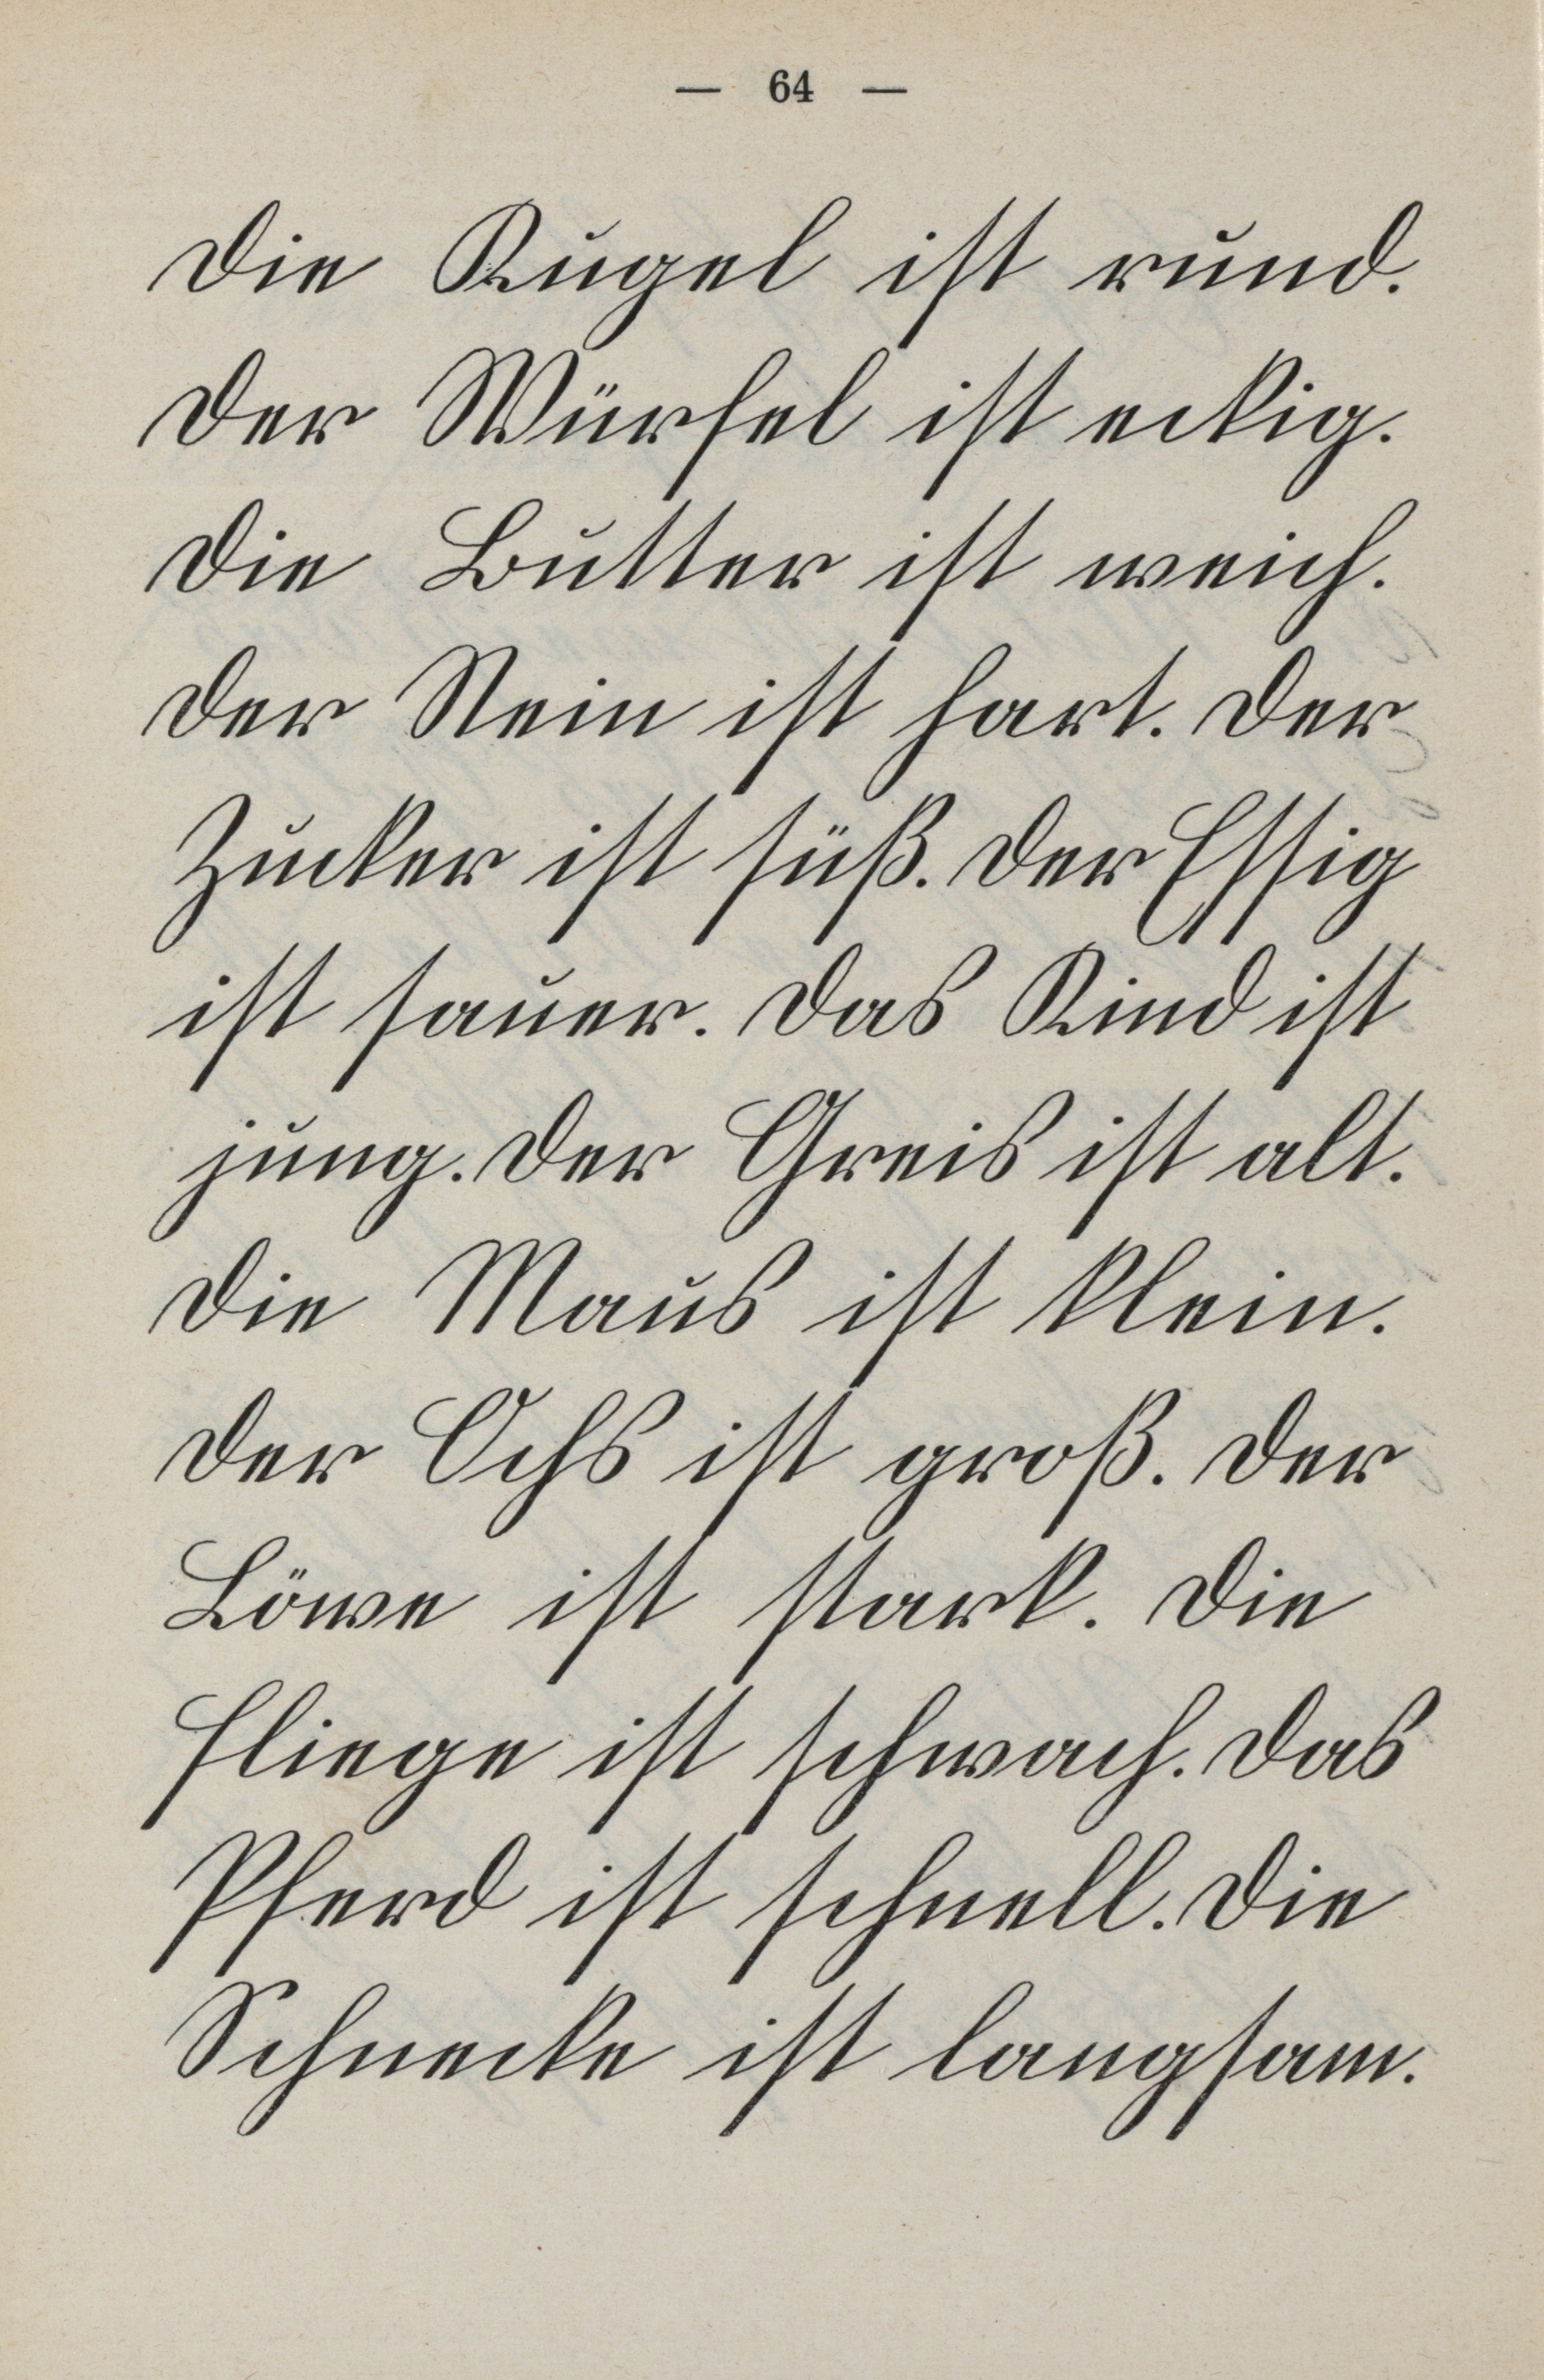 — 64 —
Die Kugel ist rund.
Der Würfel ist eckig.
Die Butter ist weich.
Der Stein ist hart. Der
Zucker ist süß. Der Essig
ist sauer. Das Kind ist
jung. Der Greis ist alt.
Die Maus ist klein.
Der Ochs ist groß. Der
Löwe ist stark. Die
Fliege ist schwach. Das
Pferd ist schnell. Die
Schnecke ist langsam.